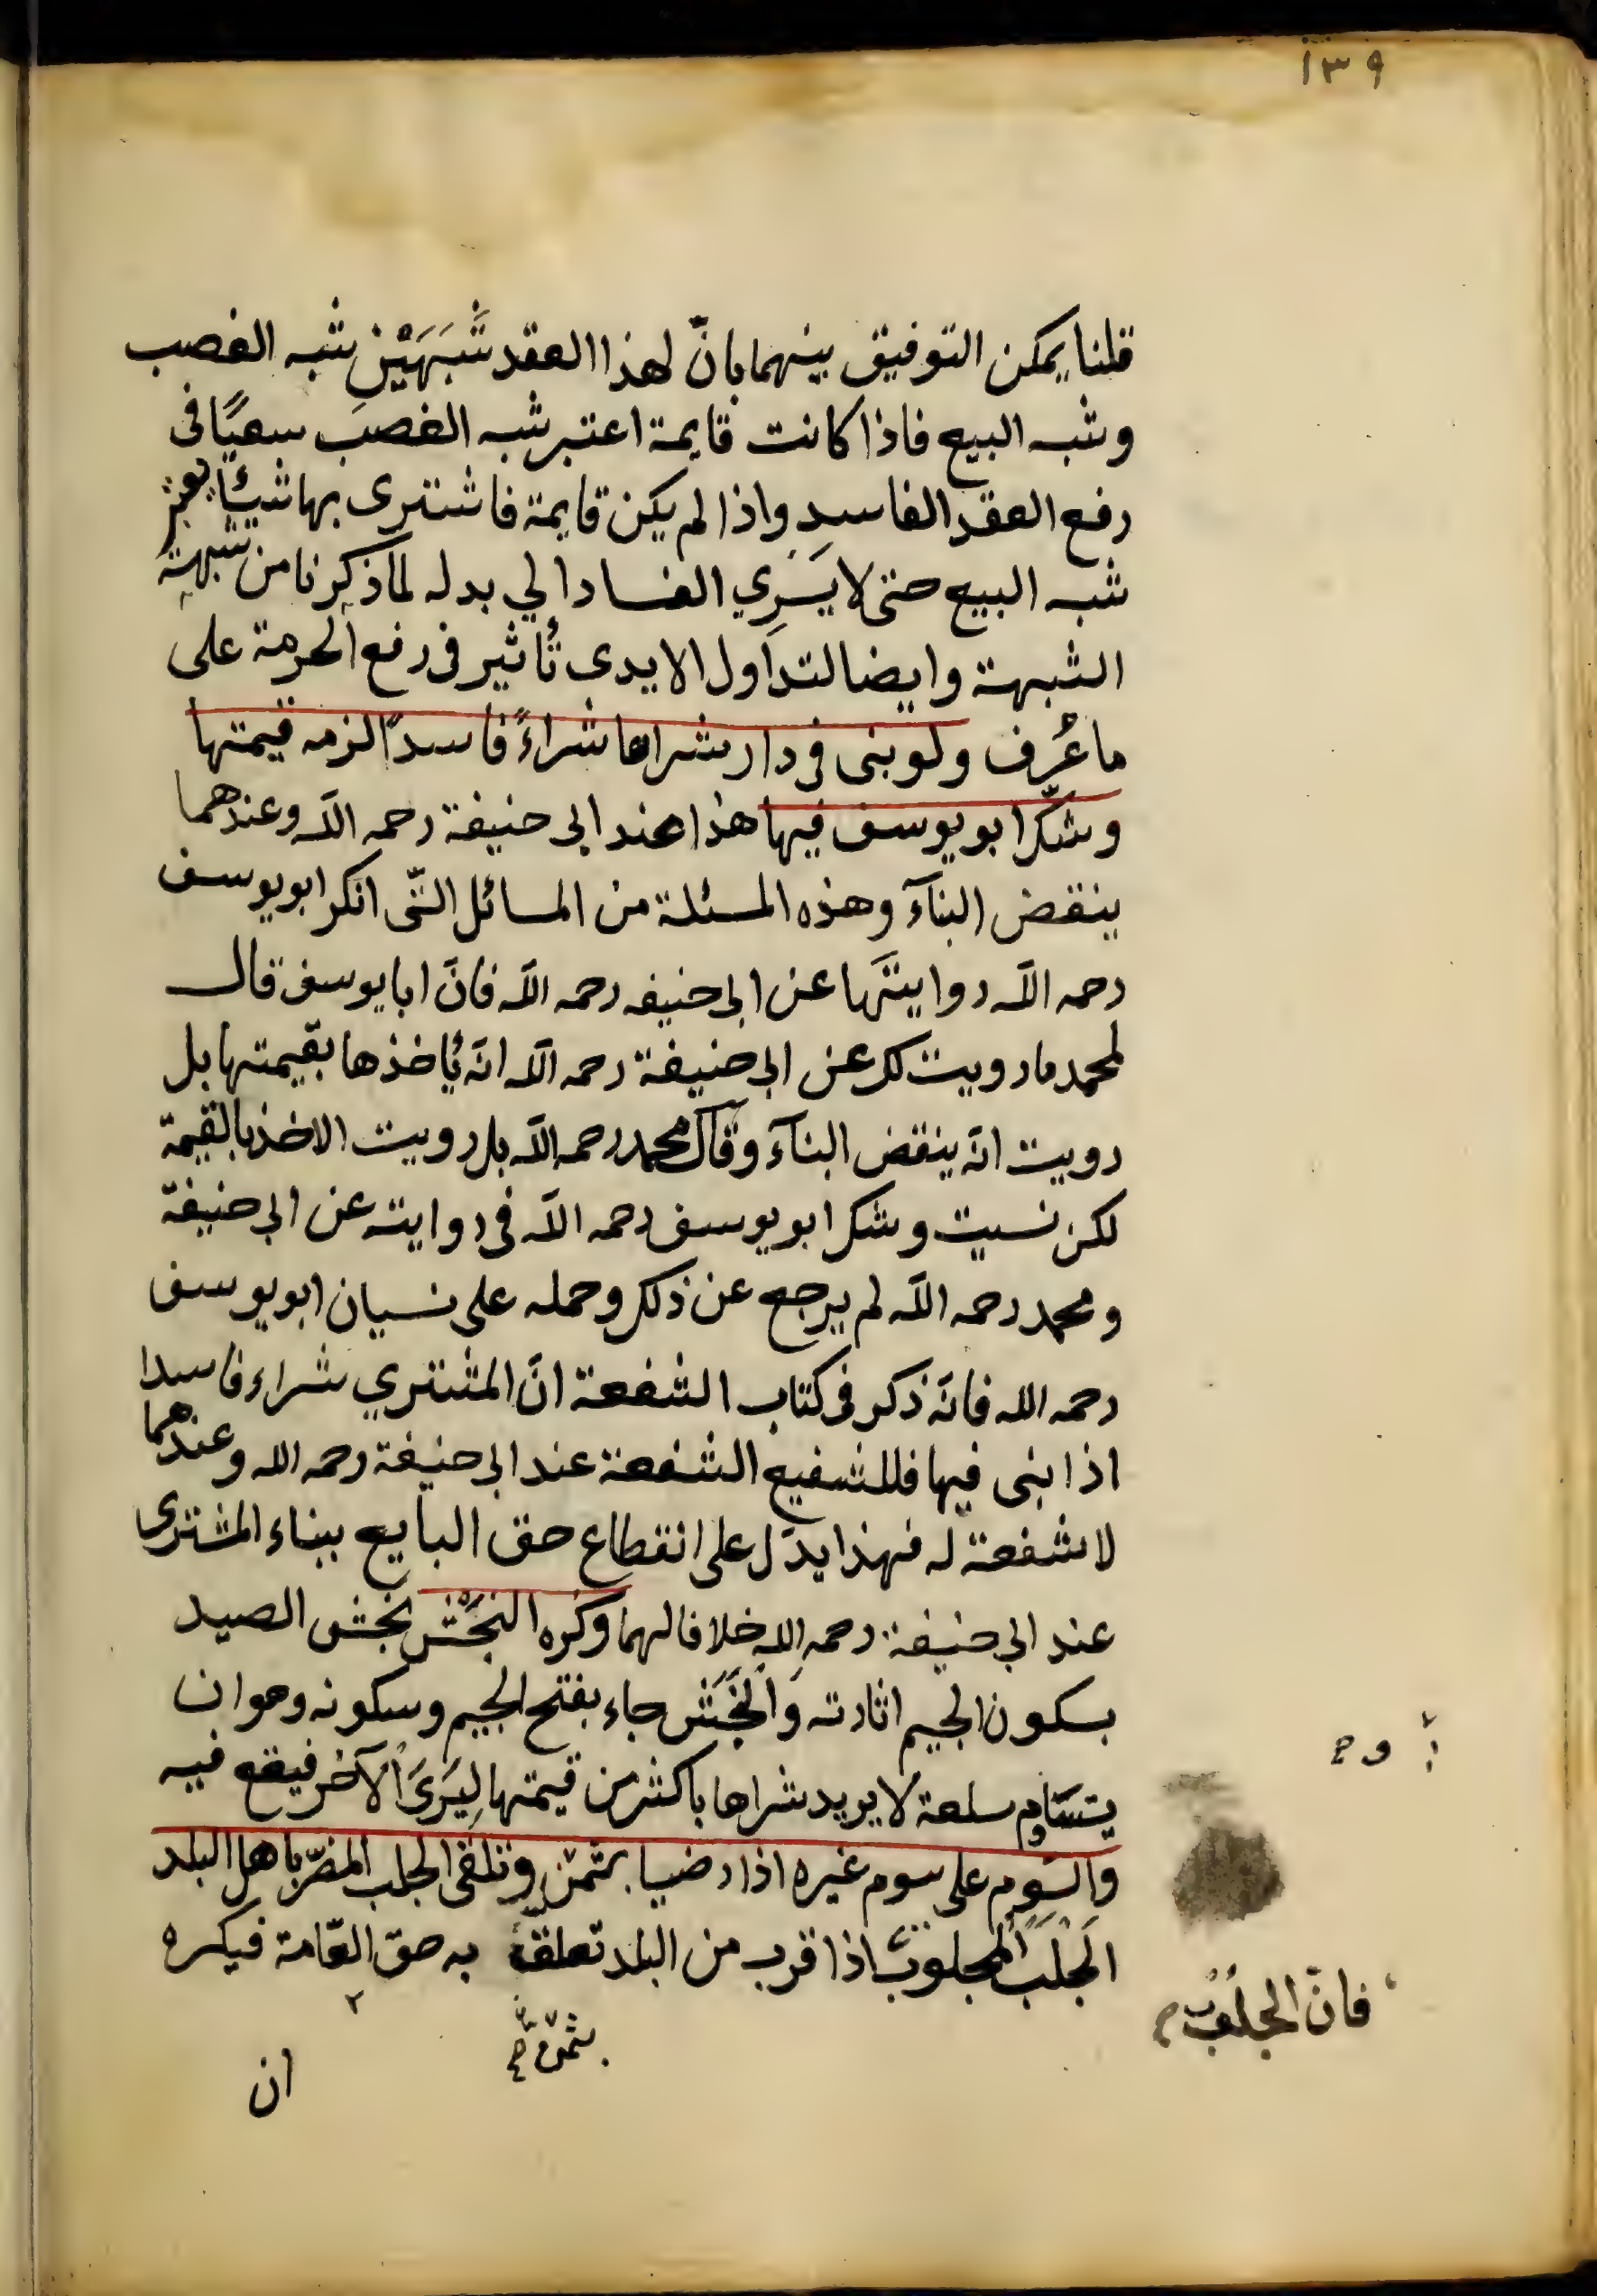 ١٣٩
قلنا يمكن التوفيق بينهما بانّ لهذا العقد شَبَهَيْنِ شبه الغصب
وشبه البيع فاذا كانت قايمة اعتبر شبه الغصب سعيًا فى
رفع العقد الفاسد واذا لم يكن قايمة فاشترى بها شيئًا يعتبر
شبه البيع حتى لا يَسْرِي الفساد الي بدله لما ذكرنا من شبهة
الشبهة وايضا لتداول الايدى تأثير فى رفع الحرمة على
ما عُرِف ولو بنى فى دار شراها شراءً فاسدًا لزمه قيمتها
وشكّ ابو يوسف فيها هذا عند ابى حنيفة رحمه الله وعندهما
ينقض البنآء وهذه المسئلة من المسائل التّى انكر ابويوسف
رحمه الله روايتَها عن ابى حنيفه رحمه الله فانّ ابا يوسف قال
لمحمد ما رويت لك عن ابى حنيفة رحمه الله انّه يأخذها بقيمتها بل
رويت انّه ينقض البنآء وقال محمد رحمه الله بل رويت الاخذ بالقيمة
لكن نسيت وشك ابو يوسف رحمه الله فى روايته عن ابى حنيفة
ومحمد رحمه الله لم يرجع عن ذلك وحمله على نسيان ابو يوسف
رحمه الله فانّه ذكر فى كتاب الشفعة انّ المشتري شراء فاسدا
اذا بنى فيها فللشفيع الشفعة عند ابى حنيفة رحمه الله وعندهما
لا شفعة له فهذا يدلّ على انقطاع حق البايع ببناء المشترى
عند ابي حنيفة رحمه الله خلافا لهما وكره النَجْش نجش الصيد
بسكون الجيم اثارته والنَجَش جاء بفتح الجيم وسكونه وهو ان
يستاوم سلعة لا يريد شراها باكثر من قيمتها لِيَرَىَ الآخر فيقع فيه
والسَوم على سوم غيره اذا رضيا بثمن وتلقى الجلب المضرّ باهل البلد
الجَلَبُ المجلوبُ اذا قرب من البلد تعلق به حقّ العّامة فيكره
فانّ الجلوب
بثمن
ان